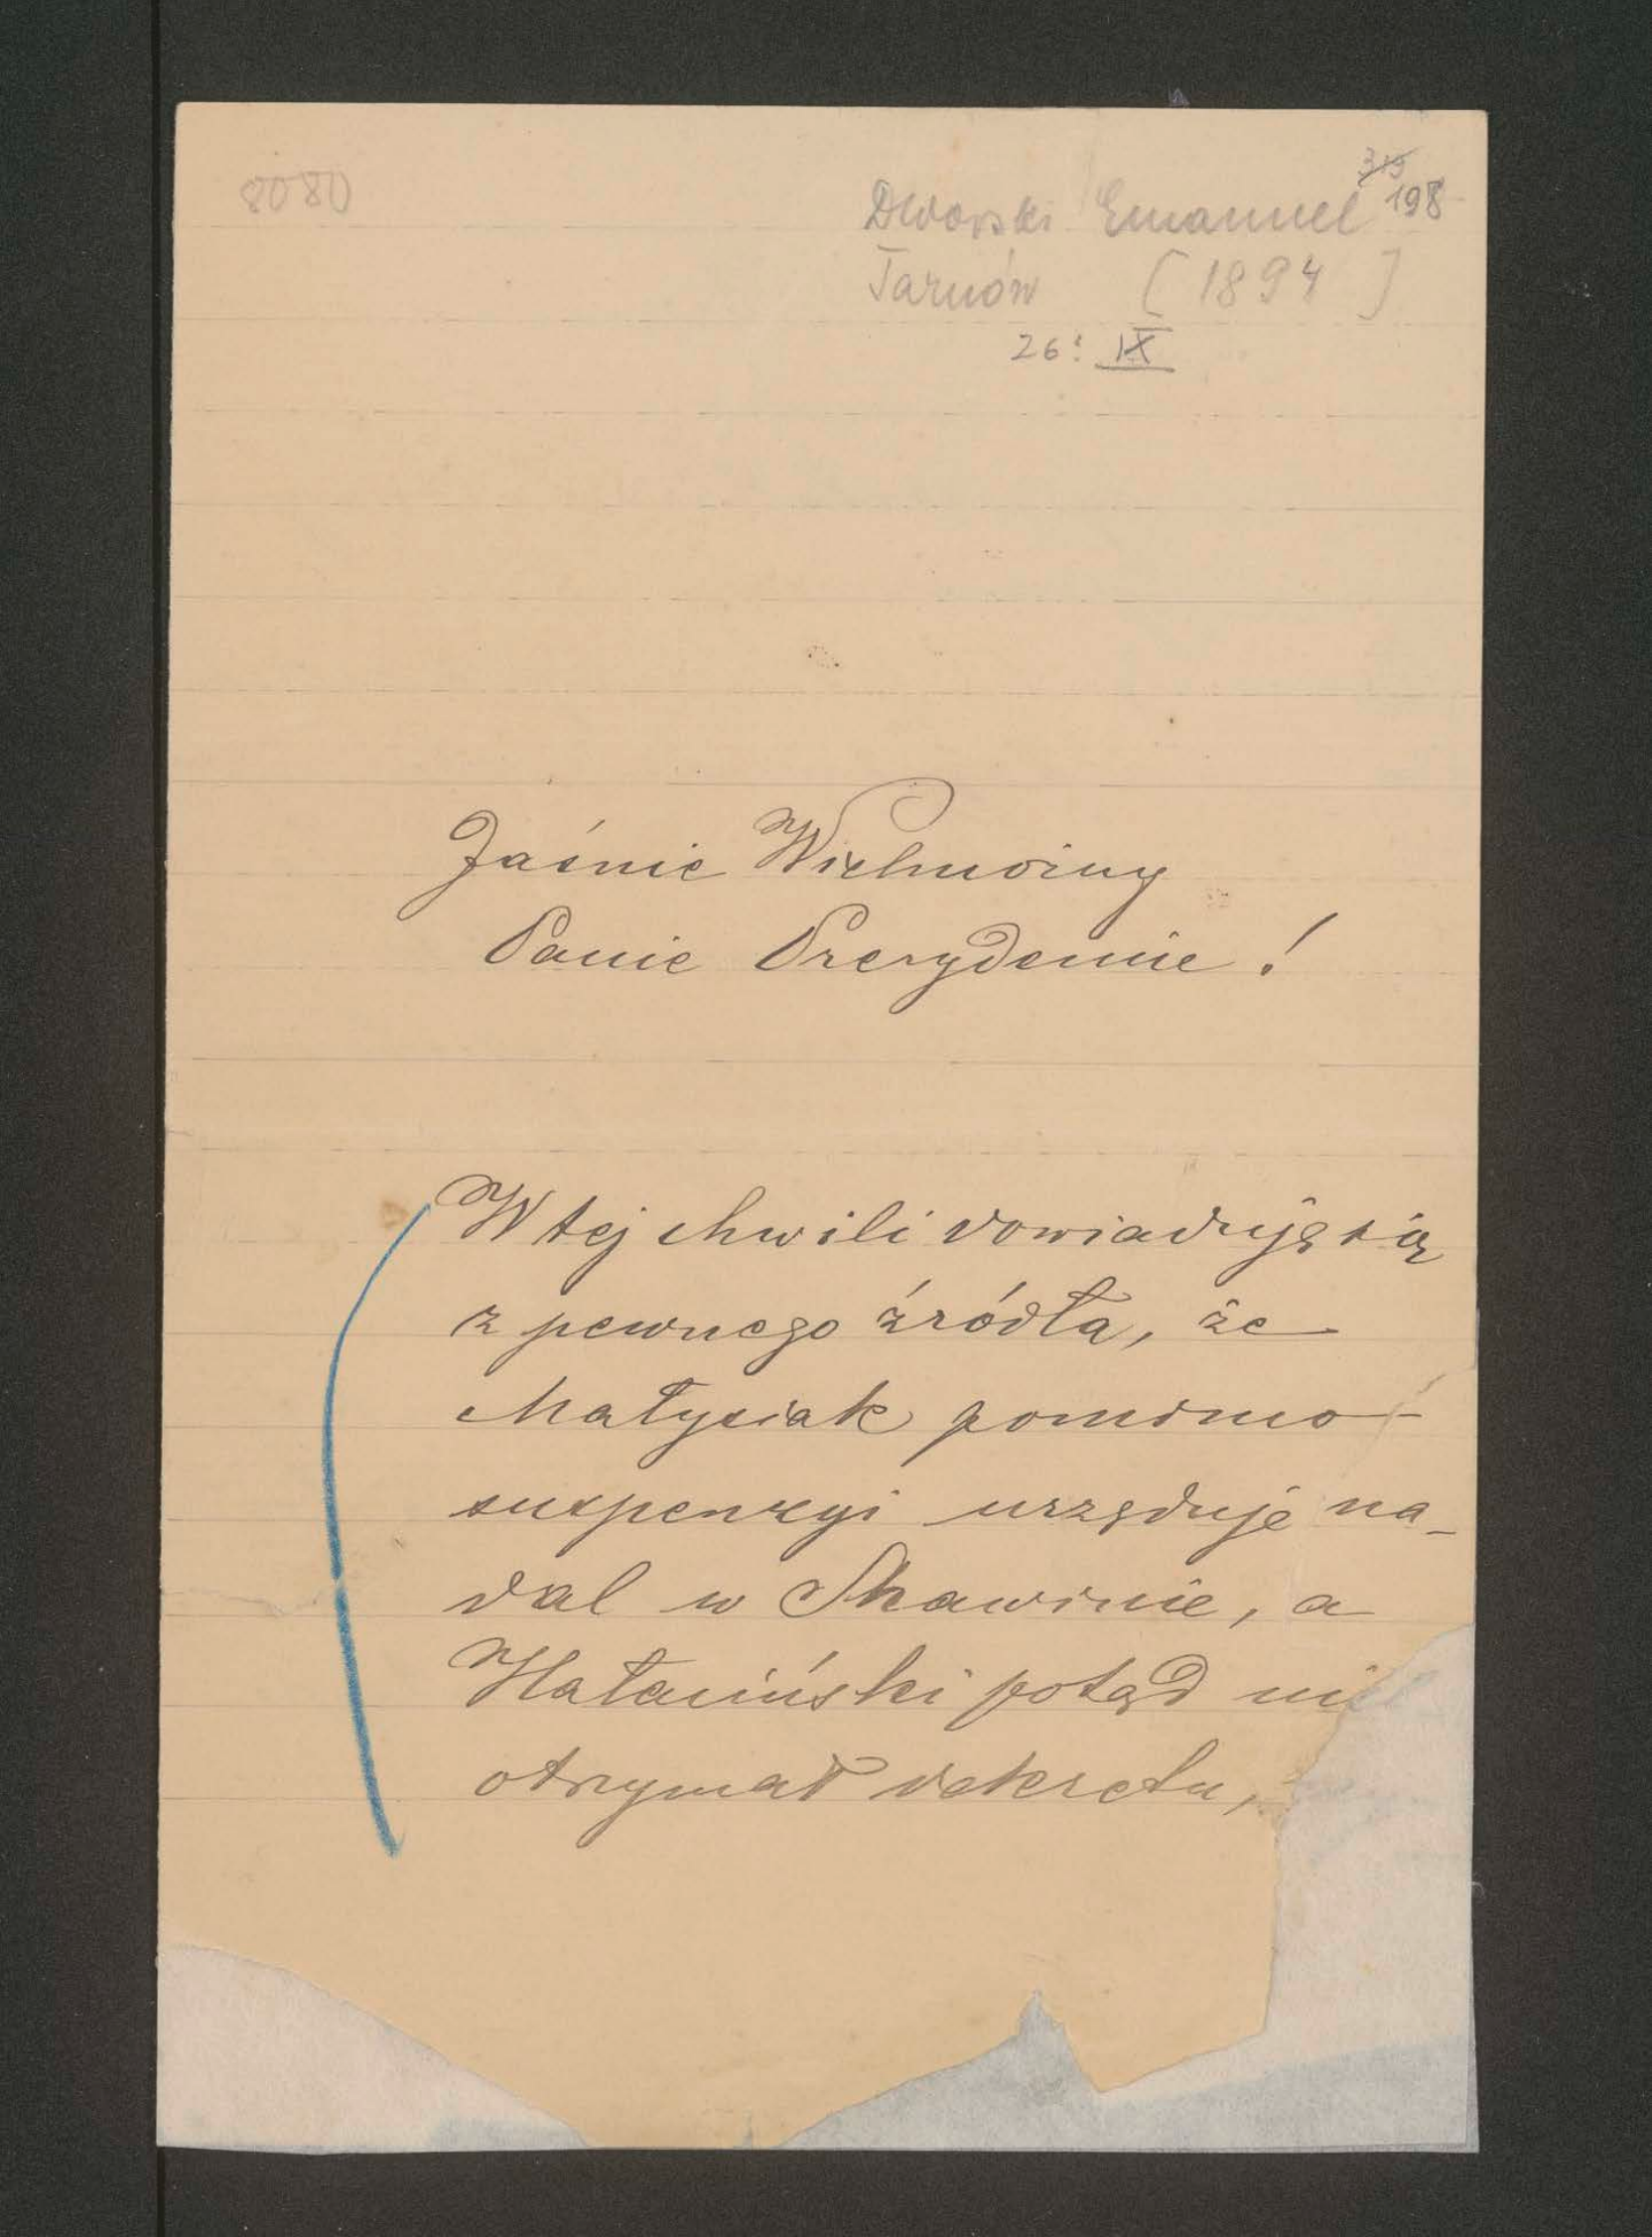 8080
319
198
Dworski Emanuel
Tarnów [1894]
26? IX
Jaśnie Wielmożny
Panie Prezydencie!
W tej chwili dowiaduję się
z pewnego źródła, że
Małysiak pomimo
suspenzyi urzęduje na-
dal w Skawinie, a
Hałaciński potąd nie
otrzymał dekretu,